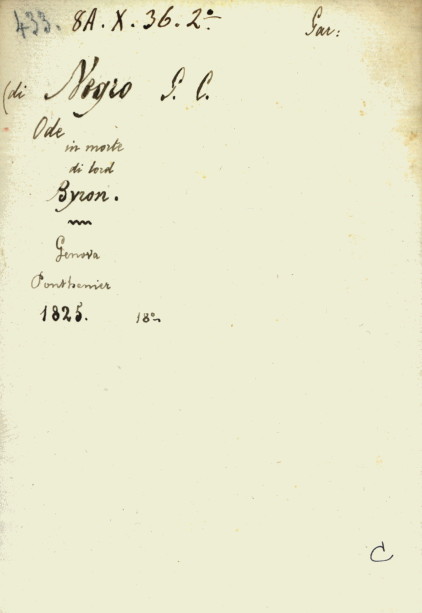 433. 8A. X. 36. 2º Gar:
(di Negro G. C.
Ode
in morte
di lord
Byron.
Genova
Ponthenier
1825. 18º
C